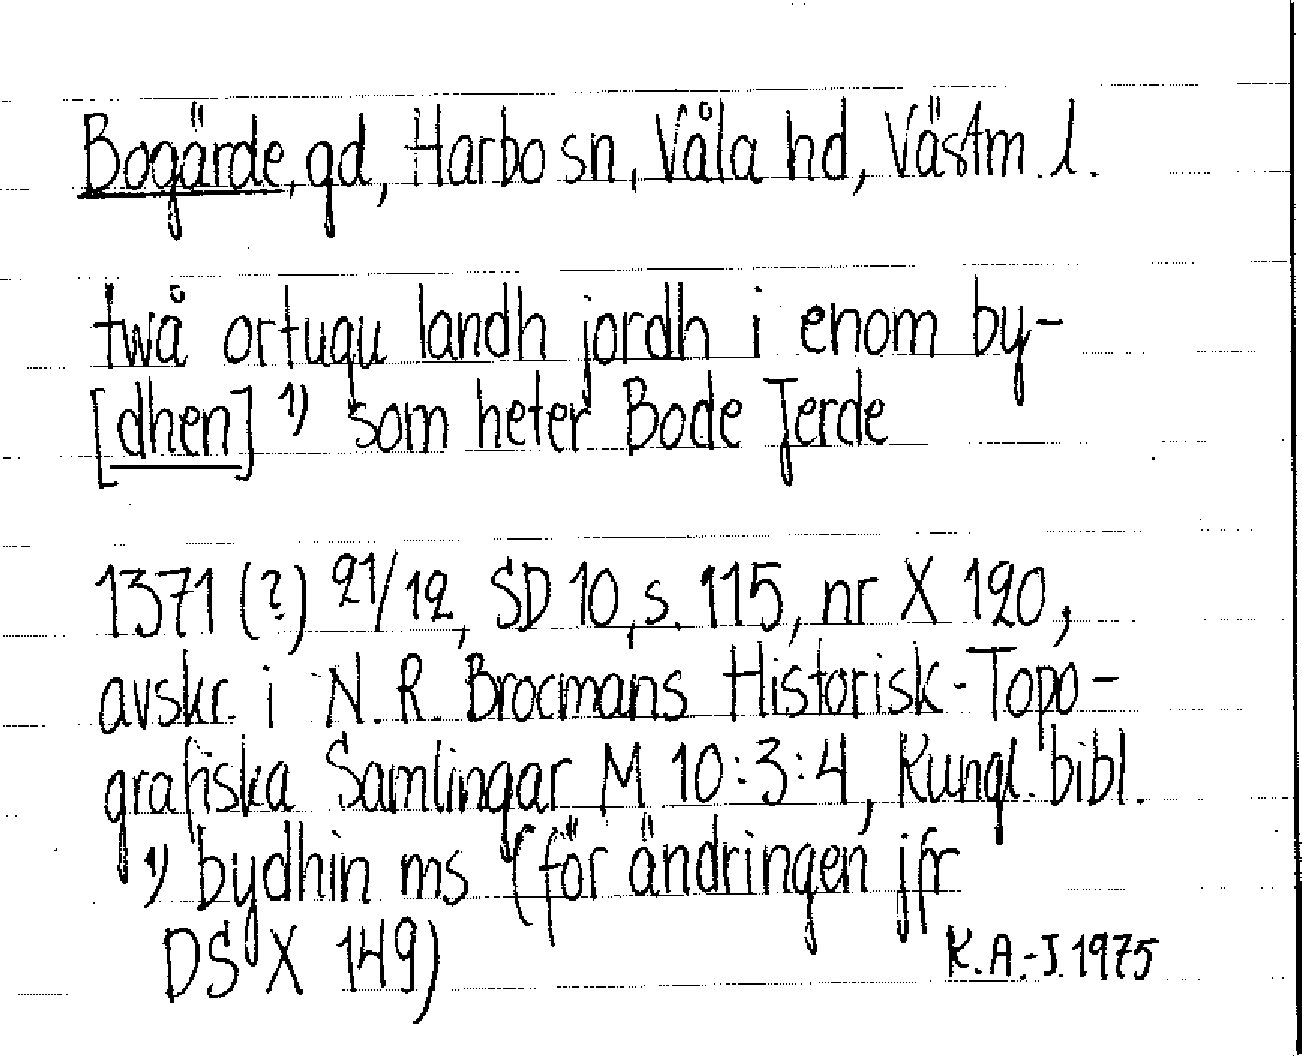 Bogärde, gd, Harbo sn, Våla hd, Västm. l.
twå ortugu landh jordh i enom by-
[dhen] 1) som heter Bode Jerde
1371 (?) 21/12, SD 10, s. 115, nr X 120,
avskr. i N. R. Brocmans Historisk-Topo-
grafiska Samlingar M 10:3:4, Kungl. bibl.
1) bydhin ms (för ändringen jfr
DS X 149)
K.A.-J. 1975